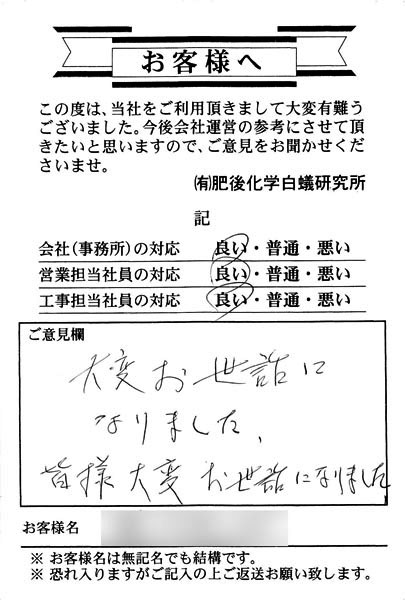 お客様へ
この度は、当社をご利用頂きまして大変有難う
ございました。今後会社運営の参考にさせて頂
きたいと思いますので、ご意見をお聞かせくだ
さいませ。
㈲肥後化学白蟻研究所
記
会社(事務所)の対応 良い・普通・悪い
営業担当社員の対応 良い・普通・悪い
工事担当社員の対応 良い・普通・悪い
ご意見欄
大変お世話に
なりました、
皆様大変お世話になりました
お客様名
※ お客様名は無記名でも結構です。
※ 恐れ入りますがご記入の上ご返送お願い致します。